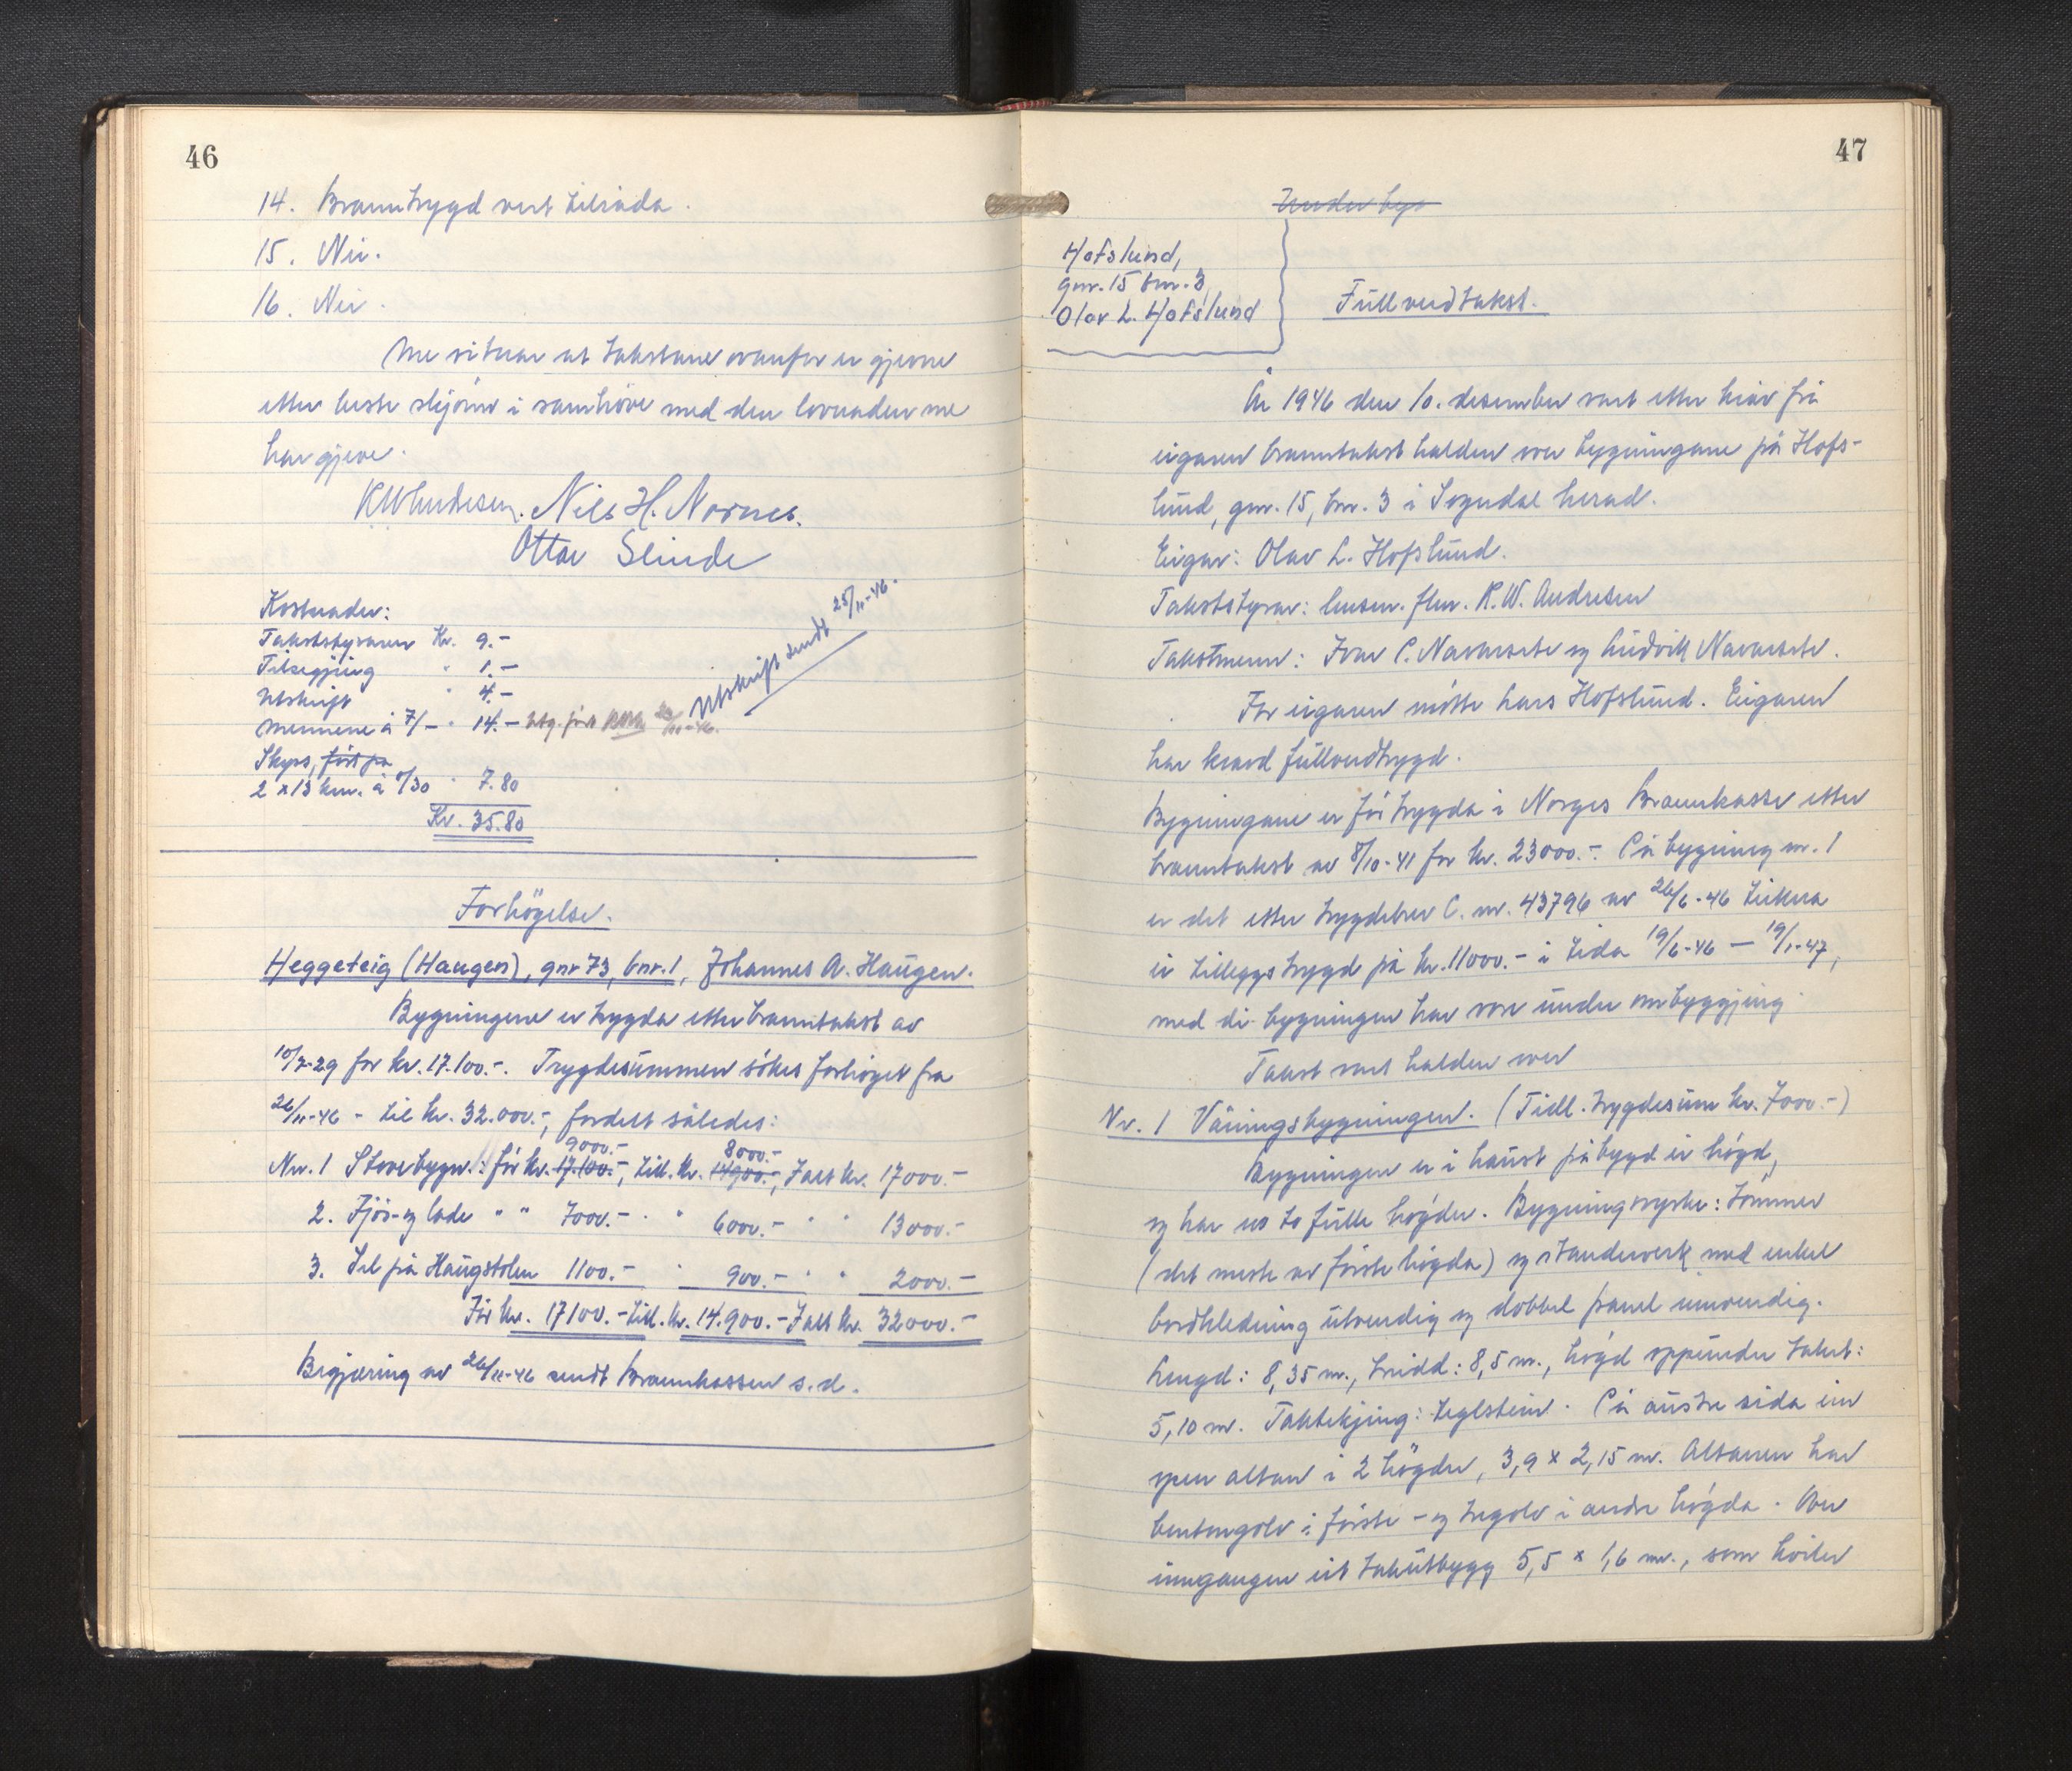 46
14. Branntrygd vert tilråda.
15. Nei.
16. Nei.
Me vitnar at takstane ovanfor er gjevne
etter beste skjönn i samhöve med den lovnaden me
har gjeve.
R W Andresen. Nils H. Nornes.
Ottar Slinde
Kostnader:
Takststyraren Kr. 9.-
Tilsegjing " 1.-
Utskrift " 4.-
Mennene á 7/- " 14.- Utg. ført RWA 26/11-46.
Utskrift sendt 25/11-46.
Skyss, ført på
2 x 13 km. á 0/30 " 7.80
Kr. 35.80
Forhögelse.
Heggeteig (Haugen), gnr 73, bnr. 1, Johannes A. Haugen.
Bygningene er trygda etter branntakst av
10/7-29 for kr. 17.100.-. Trygdesummen sökes forhöget fra
26/11-46 - til kr. 32.000.-, fordelt således:
9000.- 8000.-
Nr. 1 Stovebygn.: för kr. 17.100.-, till. kr. 14900.-, Ialt kr. 17000.-
2. Fjös- og lade " " 7000.- " " 6000.- " " 13000.-
3. Sel på Haugstölen 1100.- " 900.- " " 2000.-
För kr. 17100.- till. kr. 14.900.- Ialt kr. 32000.-
Begjæring av 26/11-46 sendt Brannkassen s.d.
47
Under byg
Hofslund,
gnr. 15 bnr. 3
Olav L. Hofslund
Fullverdtakst.
År 1946 den 10. desember vart etter krav frå
eigaren branntakst halden over bygningane på Hofs-
lund, gnr. 15, bnr. 3 i Sogndal herad.
Eigar: Olav L. Hofslund.
Takststyrar: lensm. flm. R. W. Andresen
Takstmenn: Ivar C. Navarsete og Ludvik Navarsete.
For eigaren mötte Lars Hofslund. Eigaren
har kravd fullverdtrygd.
Bygningane er för trygda i Norges Brannkasse etter
branntakst av 8/10-41 for kr. 23000.-. På bygning nr. 1
er det etter trygdebrev C. nr. 43796 av 26/6-46 teikna
ei tilleggstrygd på kr. 11000.- i tida 19/6-46 — 19/1-47,
med di bygningen har vore under ombyggjing.
Takst vart halden over
Nr. 1 Våningsbygningen. (Tidl. trygdesum kr. 7000.-)
Bygningen er i haust påbygd ei högd,
og har no to fulle högder. Bygningsvyrke: Tömmer
(det meste av förste högda) og standerverk med enkel
bordkledning utvendig og dobbel panel innvendig.
Lengd: 8,35 m., breidd: 8,5 m., högd oppunder taket:
5,10 m. Taktekjing: teglstein. På austre sida ein
open altan i 2 högder, 3,9 x 2,15 m. Altanen har
betongolv i förste - og tregolv i andre högda. Over
inngangen eit takutbygg 5,5 x 1,6 m., som kviler